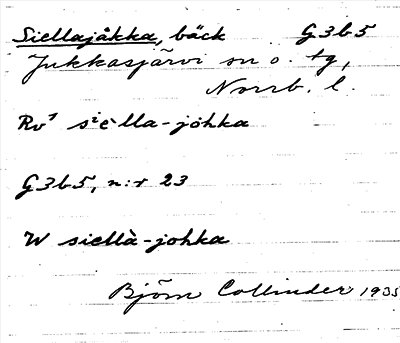 Siellajåkka, bäck G3b5
Jukkasjärvi sn o. tg,
Norrb. l.
Rv¹ siella-johka
G3b5, n:r 23
W siellà-johka
Björn Collinder 1935